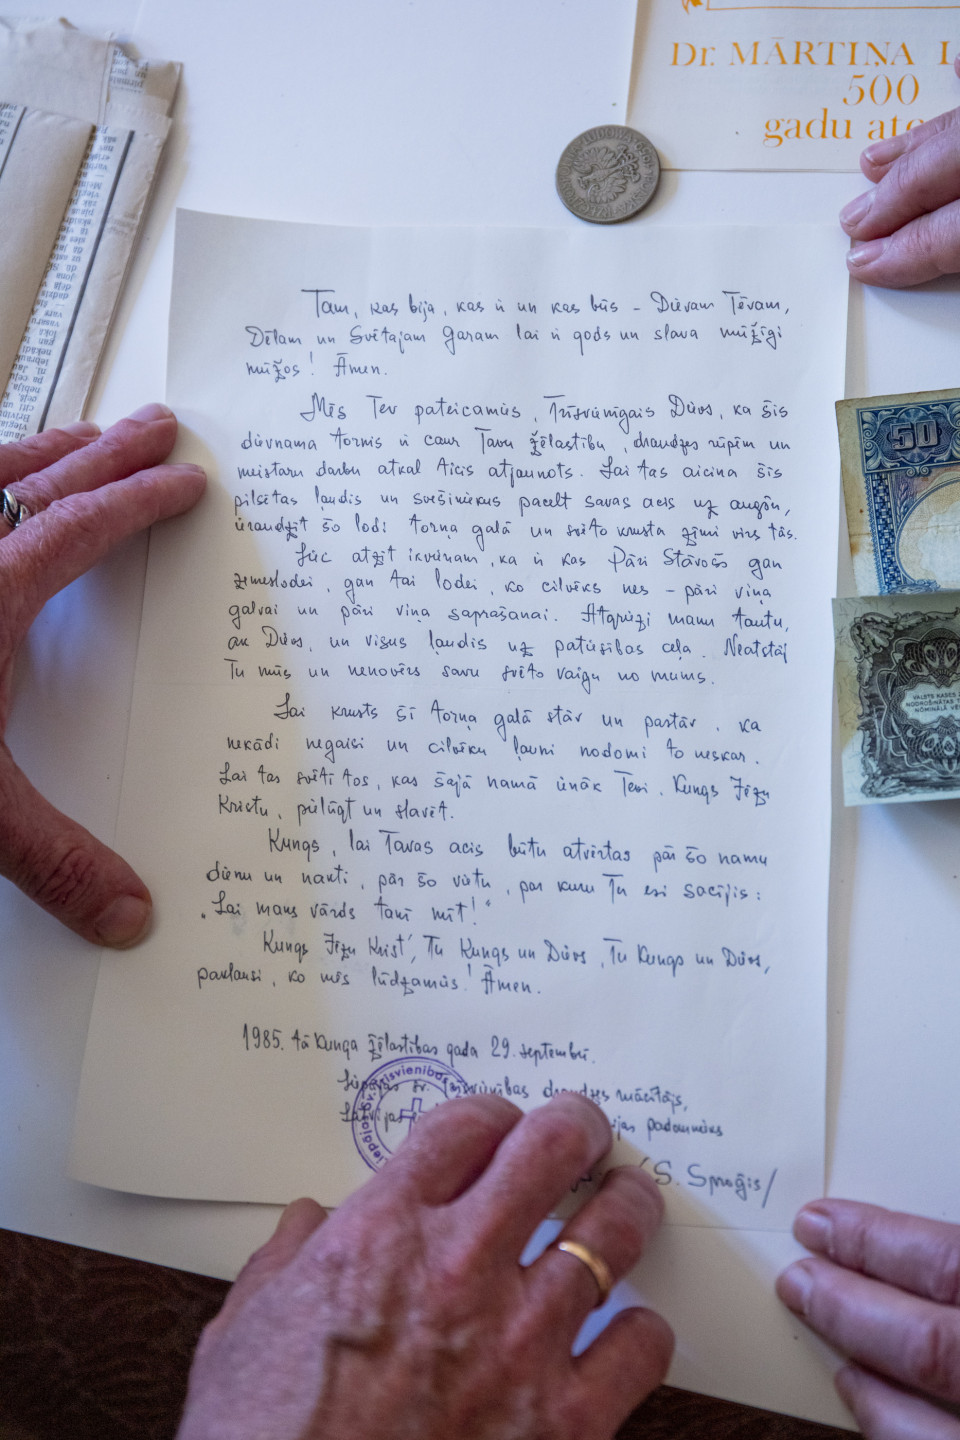 Dr. MĀRTIŅA
500
gadu
RZECZPOSPOLITA LUDOWA 1959
50
VALSTS KASES
NODROŠINĀTAS
NOMINĀLĀ
Tam, kas bija, kas ir un kas būs – Dievam Tēvam,
Dēlam un Svētajam Garam lai ir gods un slava mūžīgi
mūžos! Āmen.
Mēs Tev pateicamies, Trīsvienīgais Dievs, ka šis
dievnama tornis ir caur Tavu žēlastību, draudzes rūpēm un
meistaru darbu atkal ticis atjaunots. Lai tas aicina šis
pilsētas ļaudis un svešiniekus pacelt savas acis uz augšu,
ieraudzīt šo lodi torņa galā un svēto krusta zīmi virs tās.
Liec atzīt ikvienam, ka ir kas Pāri Stāvošs gan
zemeslodei, gan tai lodei, ko cilvēks nes – pāri viņa
galvai un pāri viņa saprašanai. Atgriezi manu tautu,
ak Dievs, un visus ļaudis uz patiesības ceļa. Neatstāj
Tu mūs un nenovērs savu svēto vaigu no mums.
Lai krusts šī torņa galā stāv un pastāv, ka
nekādi negaisi un cilvēku ļauni nodomi to neskar.
Lai tas svētī tos, kas šajā namā ienāk Tevi, Kungs Jēzu
Kristu, pielūgt un slavēt.
Kungs, lai Tavas acis būtu atvērtas pār šo namu
dienu un nakti, pār šo vietu, par kuru Tu esi sacījis:
„Lai mans vārds tanī mīt!“
Kungs Jēzu Krist', Tu Kungs un Dievs, Tu Kungs un Dievs,
paklausi, ko mēs lūdzamies! Āmen.
1985. tā Kunga žēlastības gada 29. septembrī.
Liepājas sv. Trīsvienības draudzes mācītājs,
padomnieks
/S. Sproģis/
Liepājas Sv. Trīsvienības